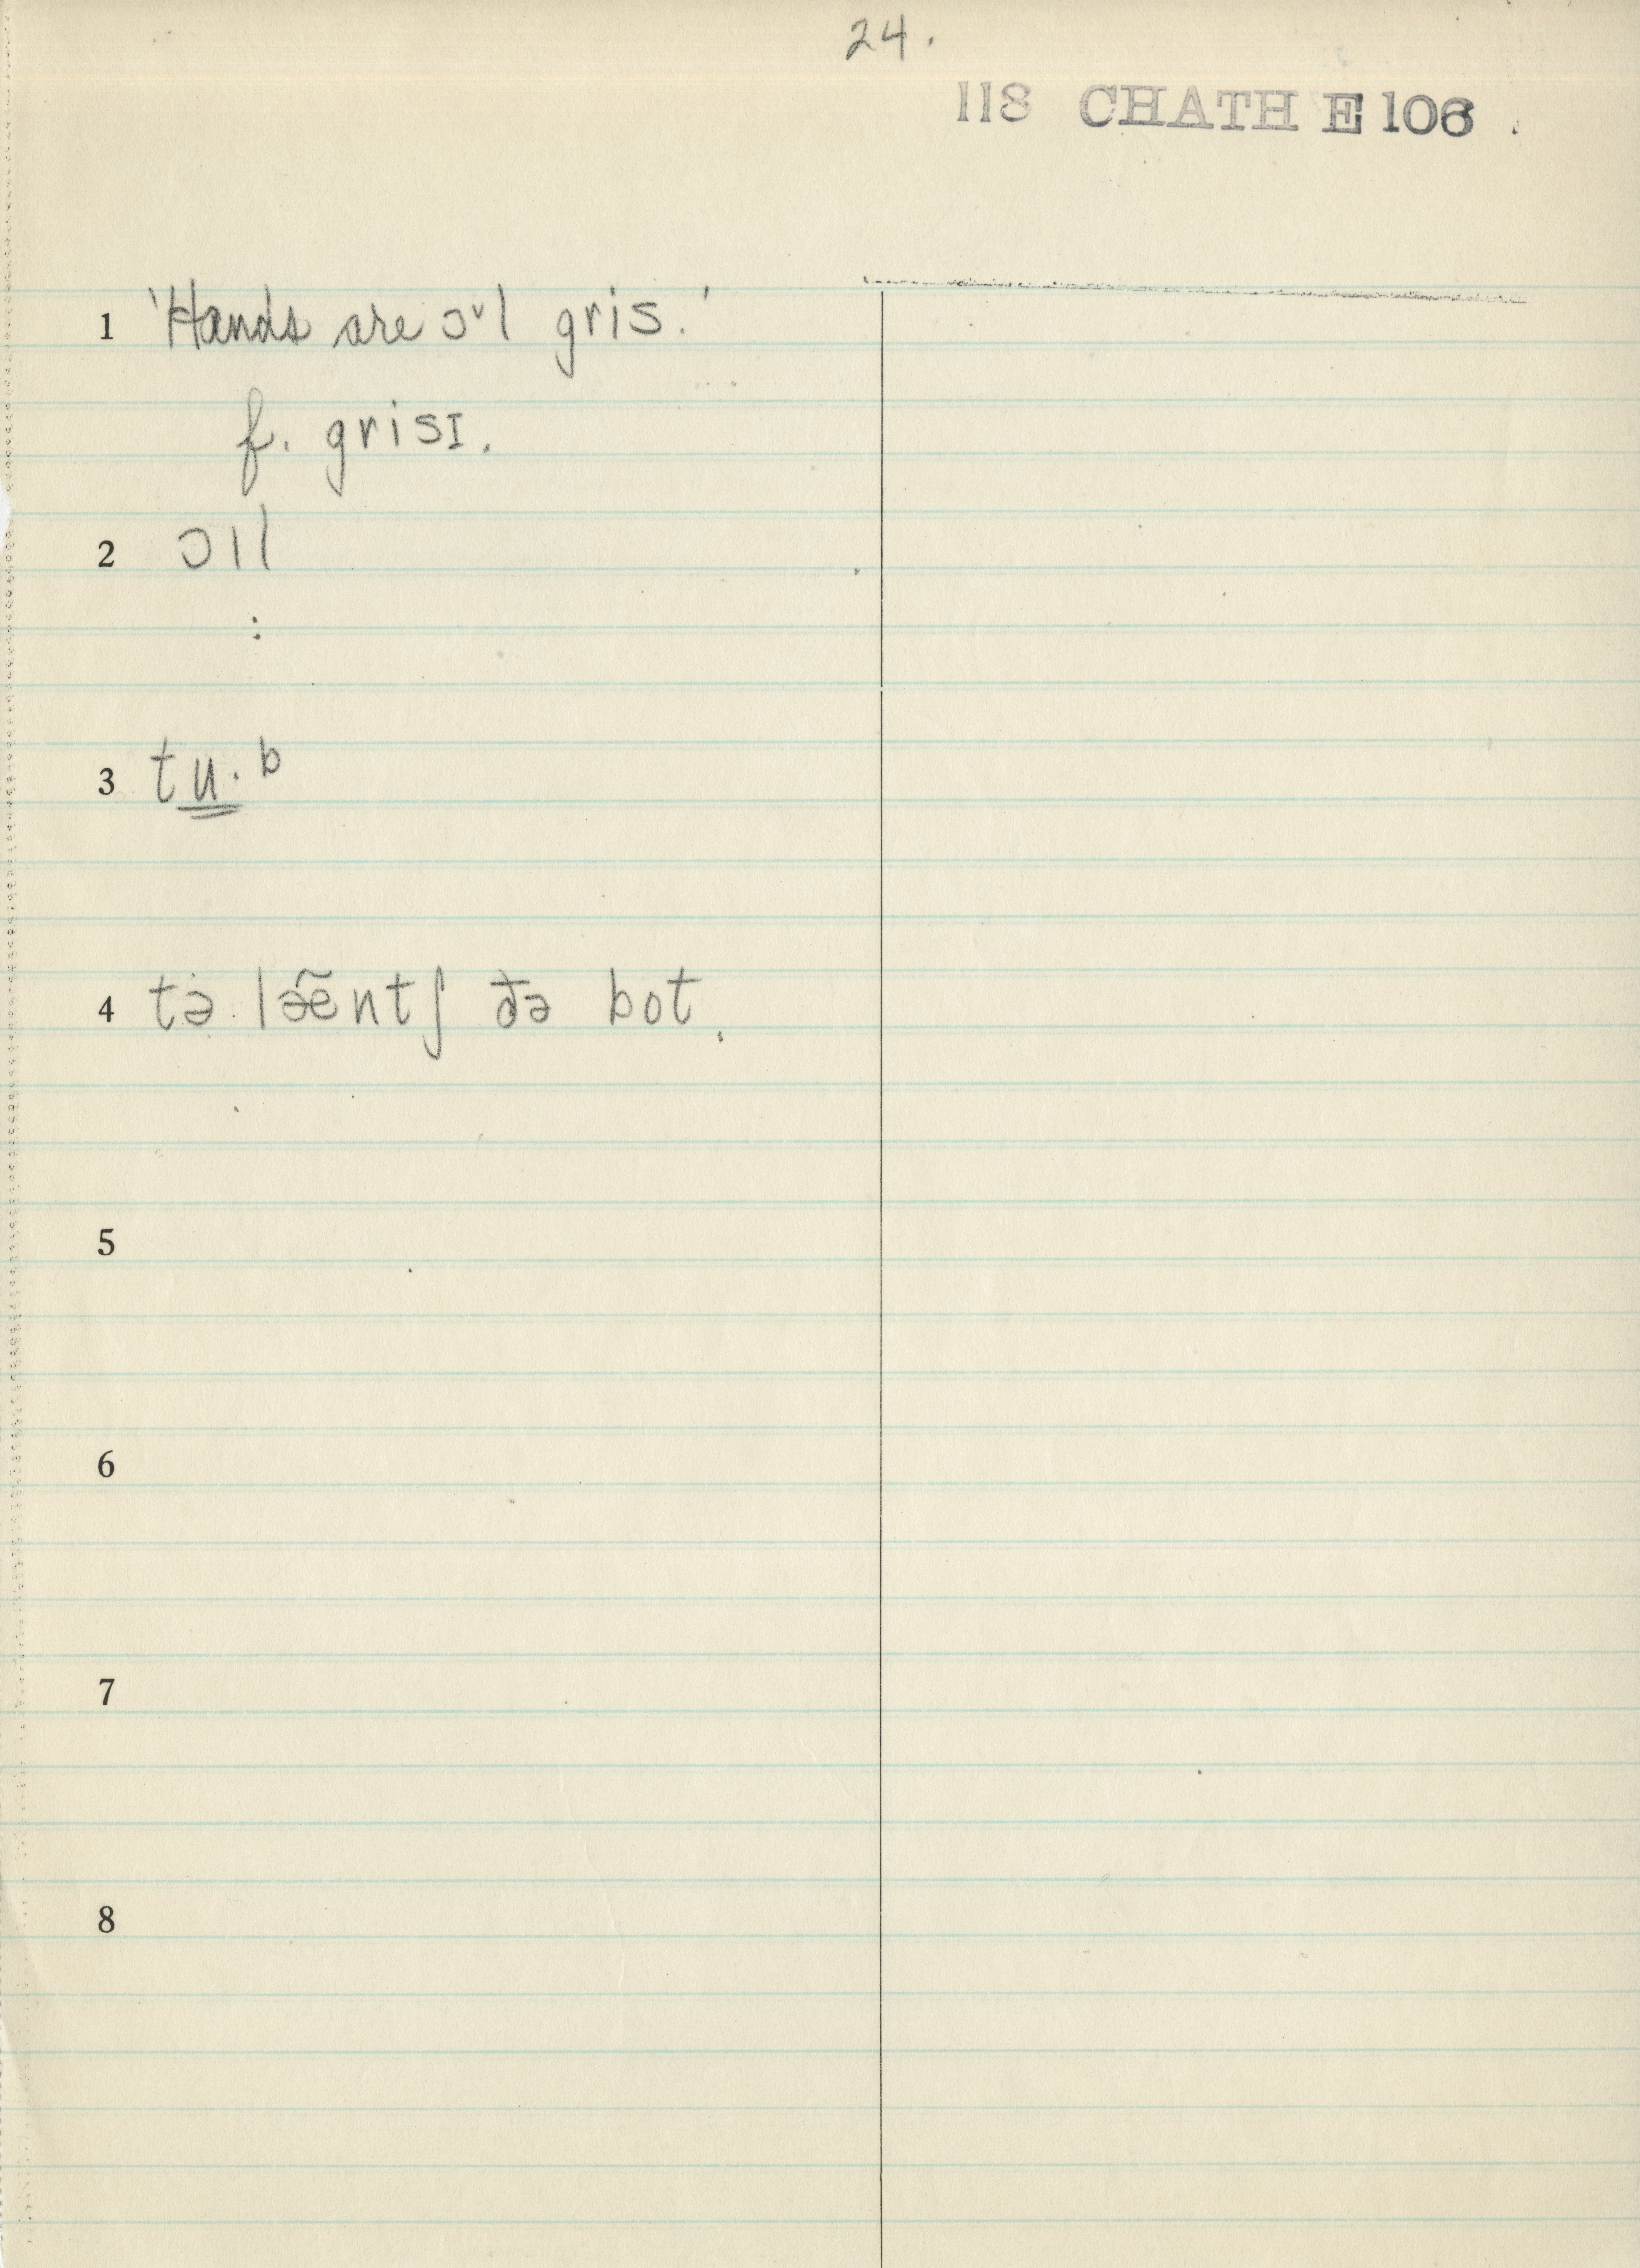 24.
118 CHATH E 106
1 'Hands are ɔˇl gris.'
f. grisɪ.
2 ɔıl
:
3 tu̳·b
4 tə lə̃ẽntʃ ðə bot.
5
6
7
8